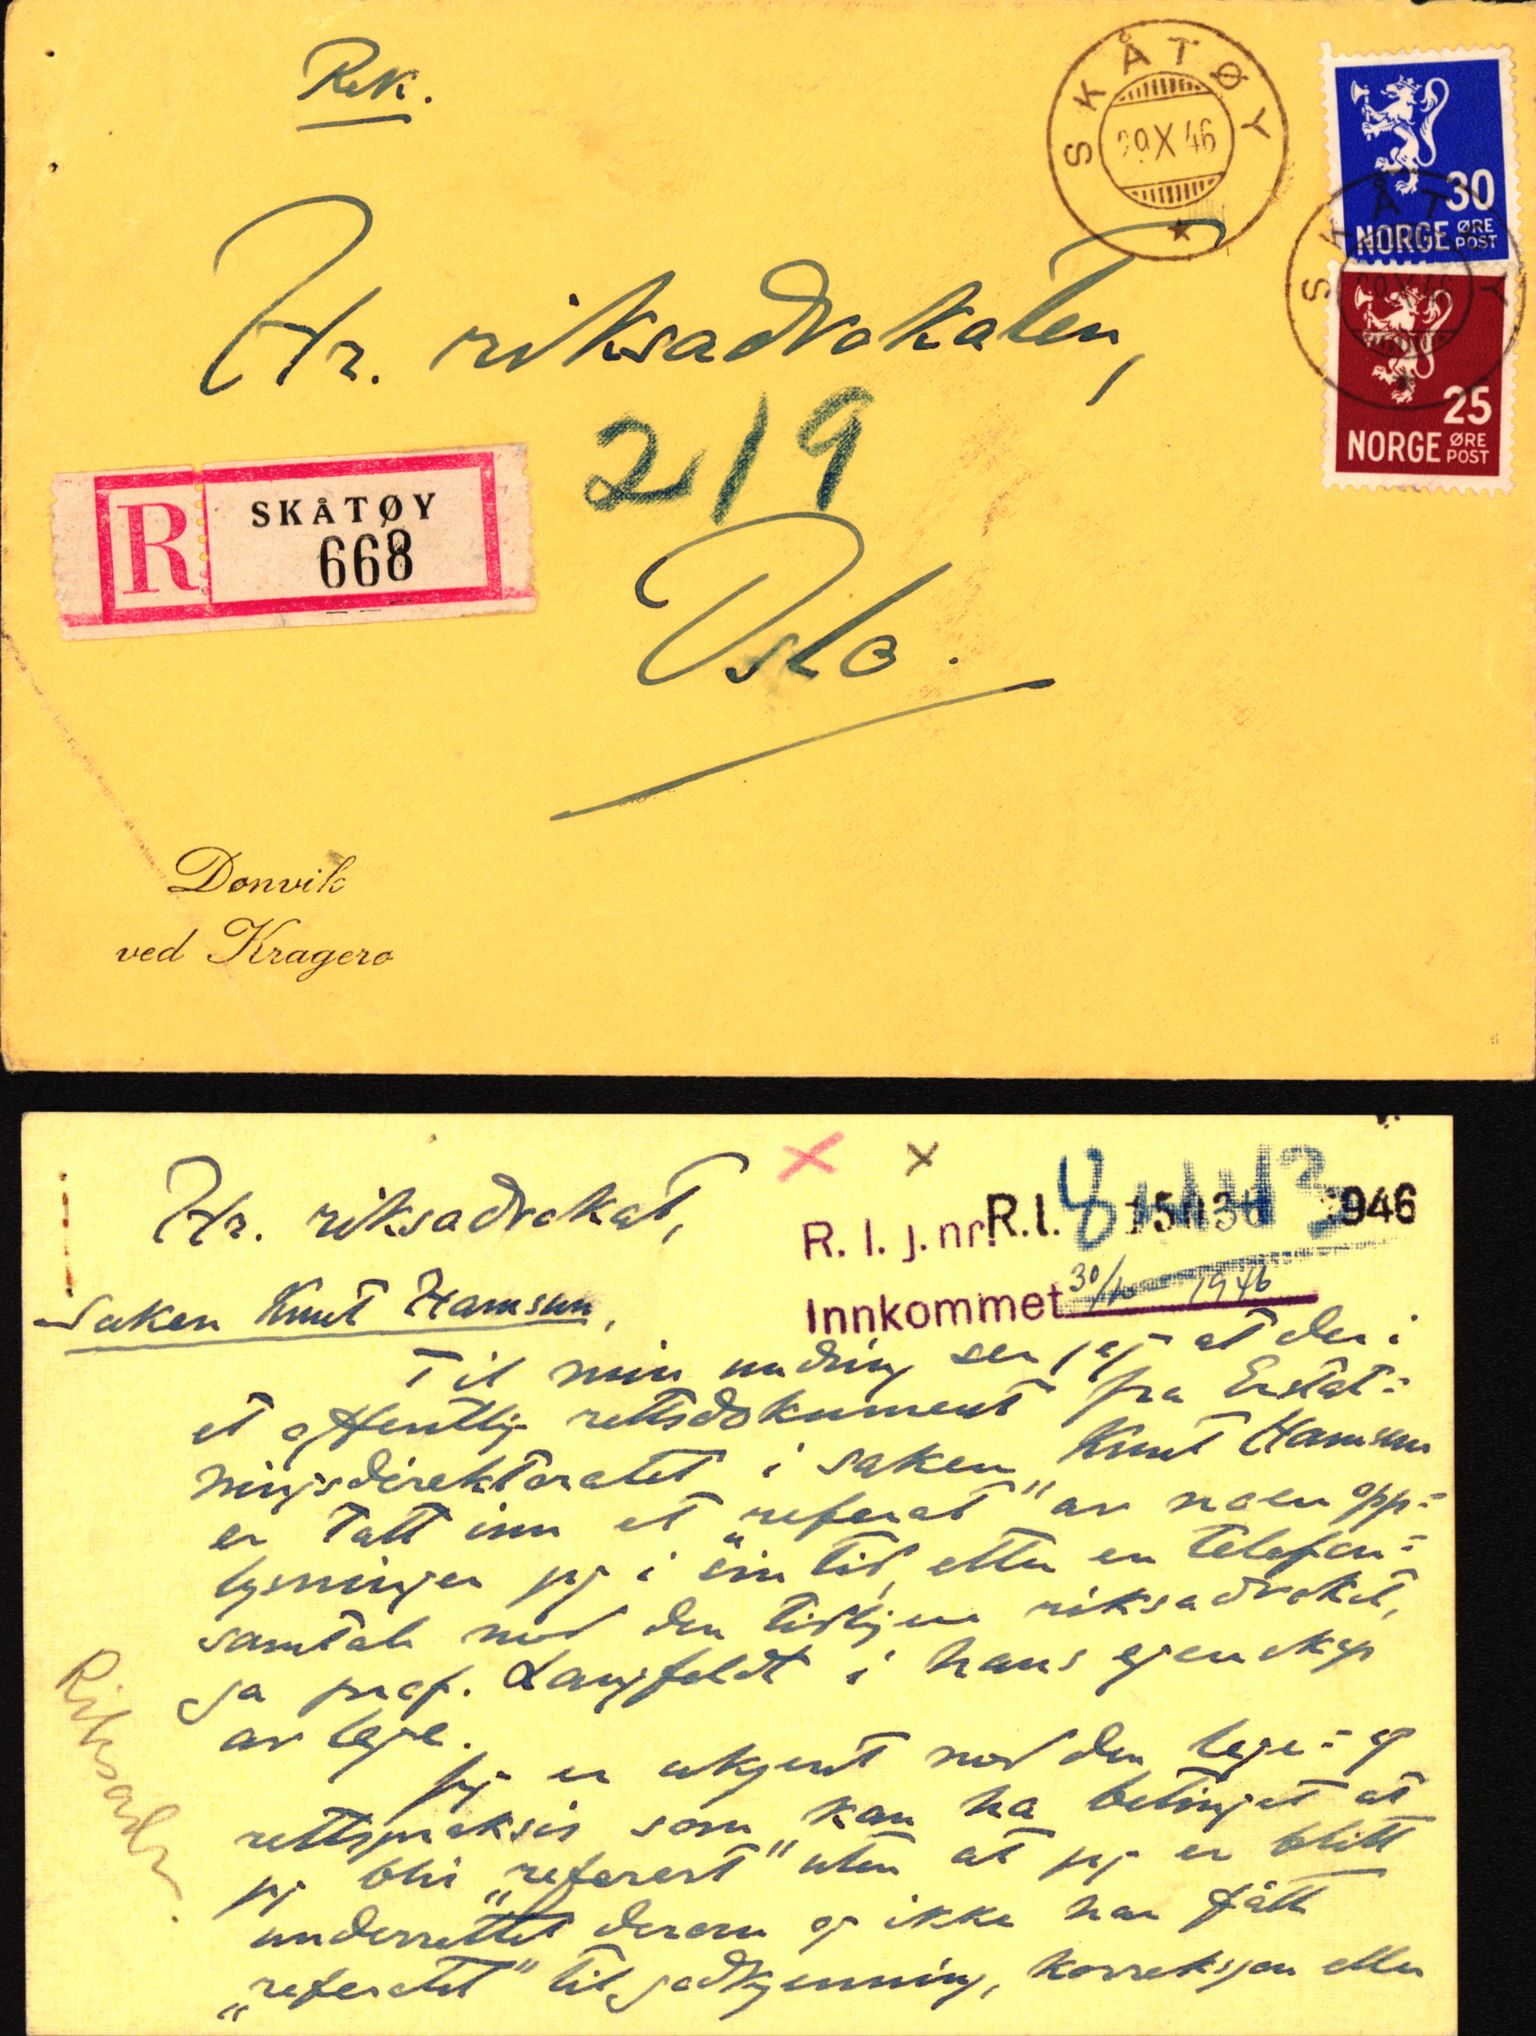 Rek.
SKÅTØY
29 X 46
30
NORGE ØRE POST
SKÅTØY
25
NORGE ØRE POST
Hr. riksadvokaten,
219
R SKÅTØY
668
Oslo.
Donvik
ved Kragerø
x x
Hr. riksadvokat,
R.I. j. nr. R.I. 1946
Innkommet 30/10 1946
Saken Knut Hamsun,
Til min undring ser jeg at der i
et offentlig rettsdokument fra Erstat=
ningsdirektoratet i saken Knut Hamsun
er tatt inn et „referat" av noen opp=
lysninger jeg i sin tid, etter en telefon=
samtale med den tidligere riksadvokat,
ga prof. Langfeldt i hans egenskap
av lege.
Jeg er ukjent med den lege= og
rettspraksis som kan ha betinget at
jeg blir „referert" uten at jeg er blitt
underrettet derom og ikke har fått
„referatet" til godkjenning, korreksjon eller
Riksadv.